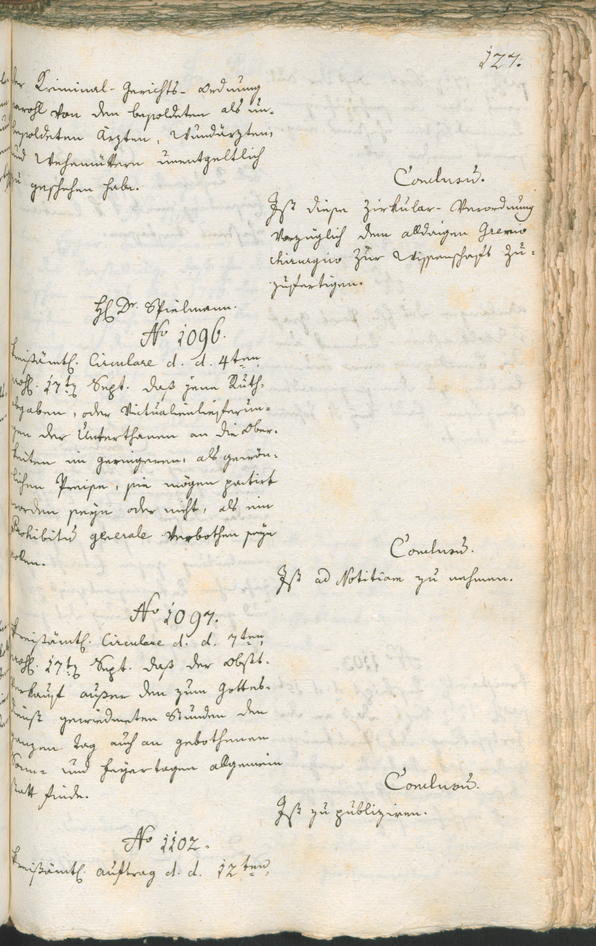 127.
der Kriminal-Gerichts-Ordnung
sowohl von den besoldeten als un-
besoldeten Ärzten, Wundärzten,
und Wehemüttern unentgeltlich
zu geschehen habe.
Conclusū.
Ist diese Zirkular-Verordnung
vorzüglich dem allhiesigen Gremio
chirurgico zur Wissenschaft zu-
zufertigen.
H. Dr. Spielmann.
No 1096.
Kreisämtl. Circulare d. d. 4ten
17ten Sept. daß jene Nath.
abgaben, oder Victualienlieferun-
gen der Unterthanen an die Obrig-
keiten im geringeren, als gewön-
lichen Preise, sie mögen patirt
worden seyn oder nicht, als ein
Prohibitū generale verbothen seyn
sollen.
Conclusū.
Ist ad Notitiam zu nehmen.
No 1097.
Kreisämtl. Circulare d. d. 7ten
17ten Sept. daß der Obst-
verkauf außer den zum Gottes-
dienst gewiedmeten Stunden den
ganzen Tag auch an gebothenen
Sonn- und Feyertagen allgemein
statt finde.
Conclusū.
Ist zu publiziren.
No 1102.
Kreisämtl. Auftrag d. d. 12ten